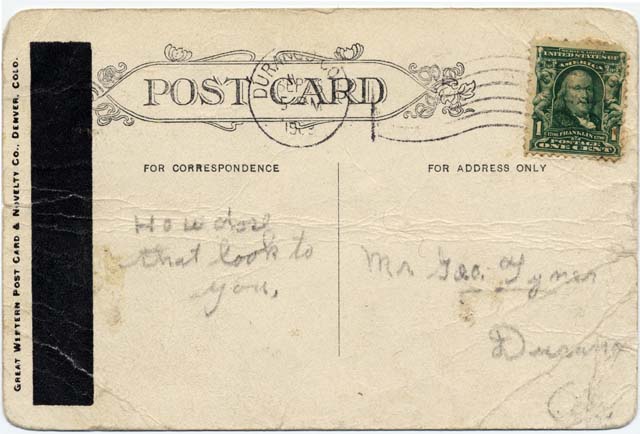 GREAT WESTERN POST CARD & NOVELTY CO., DENVER, COLO.
POST CARD
DURANGO
SEP
UNITED STATES OF
AMERICA
1 FRANKLIN 1
POSTAGE
ONE CENT
FOR CORRESPONDENCE
FOR ADDRESS ONLY
How does
that look to
you,
Mr Geo. Tyner
Durang